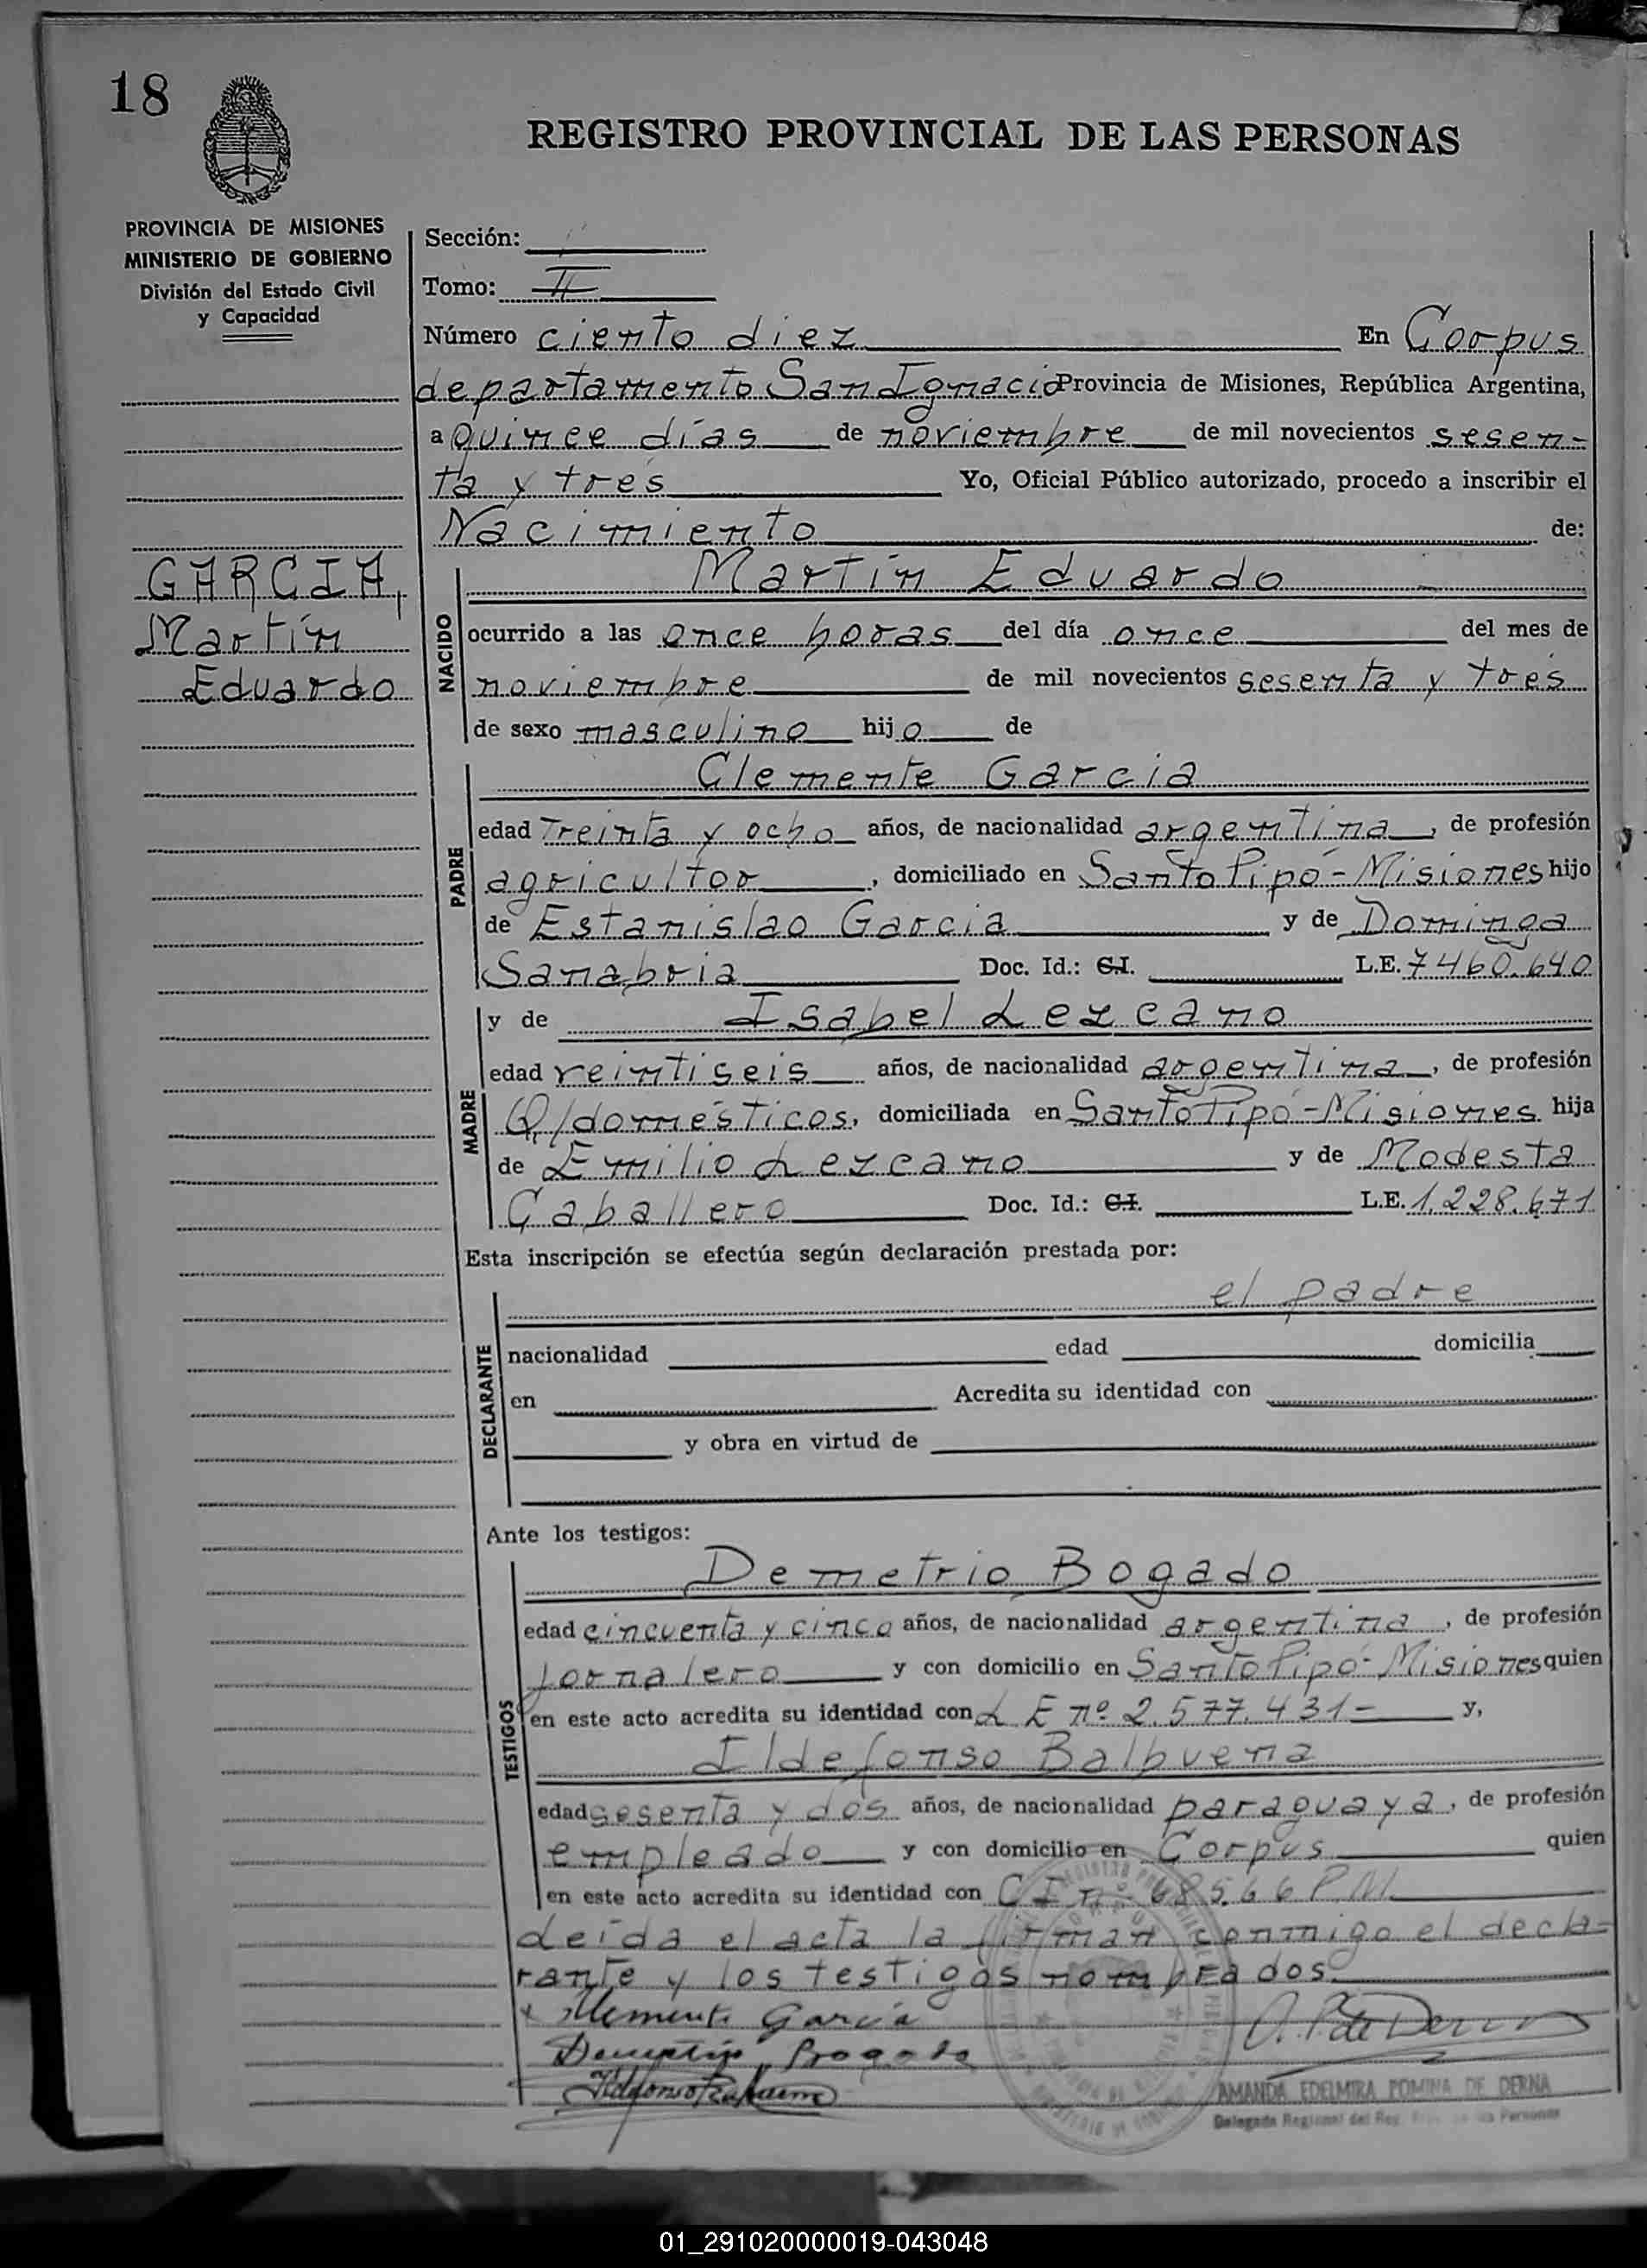 18
REGISTRO PROVINCIAL DE LAS PERSONAS
PROVINCIA DE MISIONES
MINISTERIO DE GOBIERNO
División del Estado Civil
y Capacidad
Sección:
Tomo: II
Número ciento diez En Corpus
departamento San Ignacio Provincia de Misiones, República Argentina,
a quince días de noviembre de mil novecientos sesen-
ta y tres Yo, Oficial Público autorizado, procedo a inscribir el
Nacimiento de:
GARCIA,
Martín
Eduardo
NACIDO
Martín Eduardo
ocurrido a las once horas del día once del mes de
noviembre de mil novecientos sesenta y tres
de sexo masculino hijo de
PADRE
Clemente Garcia
edad Treinta y ocho años, de nacionalidad argentina, de profesión
agricultor, domiciliado en Santo Pipó-Misiones hijo
de Estanislao Garcia y de Dominga
Sanabria Doc. Id.: C.I. L.E. 7460.640
MADRE
y de Isabel Lezcano
edad veintiseis años, de nacionalidad argentina, de profesión
Q/domésticos, domiciliada en Santo Pipó-Misiones hija
de Emilio Lezcano y de Modesta
Caballero Doc. Id.: C.I. L.E. 1.228.671
Esta inscripción se efectúa según declaración prestada por:
DECLARANTE
el padre
nacionalidad edad domicilia
en Acredita su identidad con
y obra en virtud de
Ante los testigos:
TESTIGOS
Demetrio Bogado
edad cincuenta y cinco años, de nacionalidad argentina, de profesión
jornalero y con domicilio en Santo Pipó-Misiones quien
en este acto acredita su identidad con L E nº 2.577.431- y,
Ildefonso Balbuena
edad sesenta y dos años, de nacionalidad paraguaya, de profesión
empleado y con domicilio en Corpus quien
en este acto acredita su identidad con C I nº 68566 P.M.
Leída el acta la firman conmigo el decla-
rante y los testigos nombrados
Clemente García
Demetrio Bogado
Ildefonso Balbuena
A. P. de Derna
AMANDA EDELMIRA POMINA DE DERNA
Delegada Regional del Reg. de las Personas
01_291020000019-043048